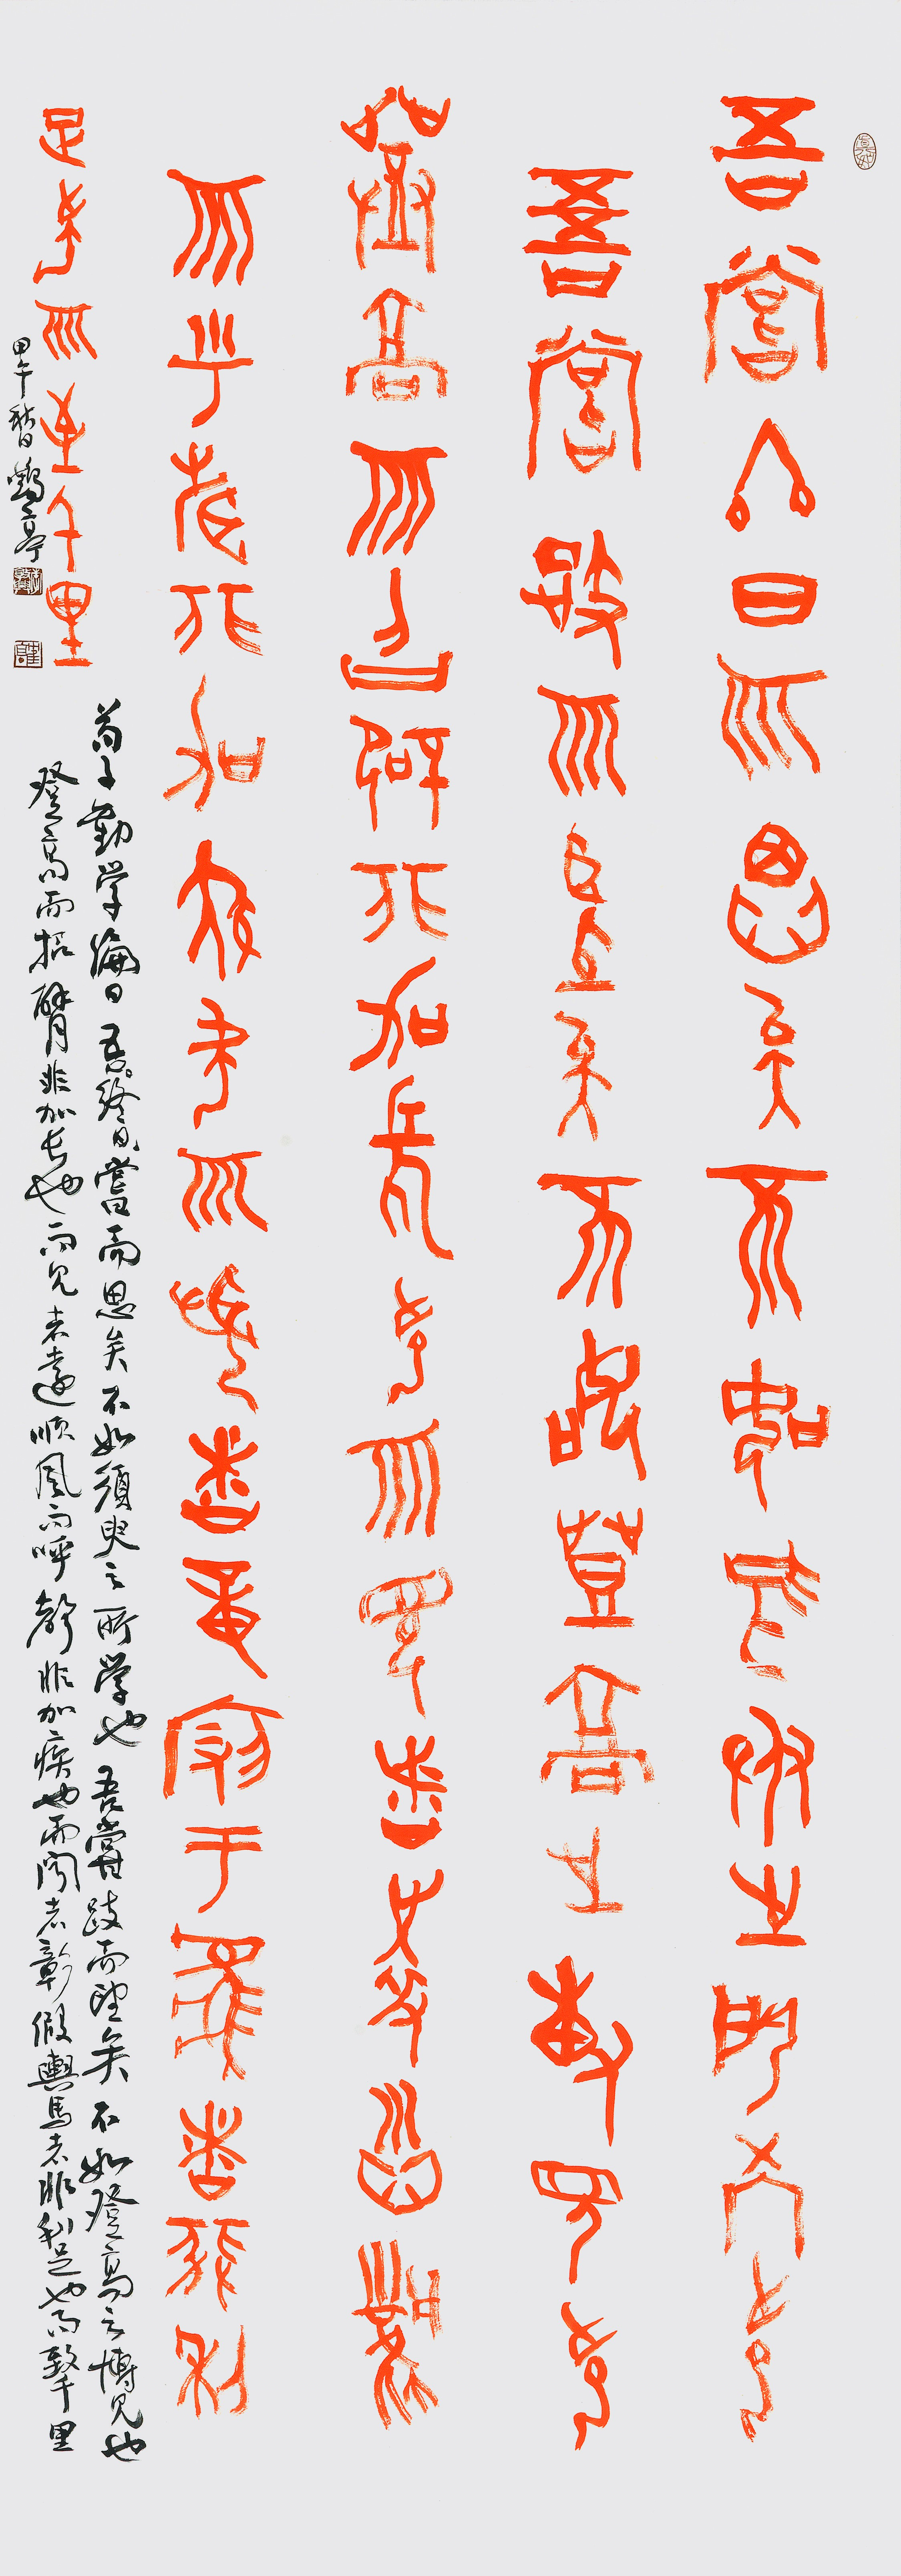 吾嘗終日而思矣不如須臾之所學也
吾嘗跂而望矣不如登高之博見也
登高而招臂非加長也而見者遠順風
而乎聲非加疾也而聞者章叚于馬者非利
足也而至千里
荀子勸学論曰吾終日嘗而思矣不如須臾之所学也吾嘗跂而望矣不如登高之博见也
登高而招臂非加长也而见者遠順風而呼聲非加疾也而闻者彰假輿馬者非利足也而致千里
甲午秋日鶴亭